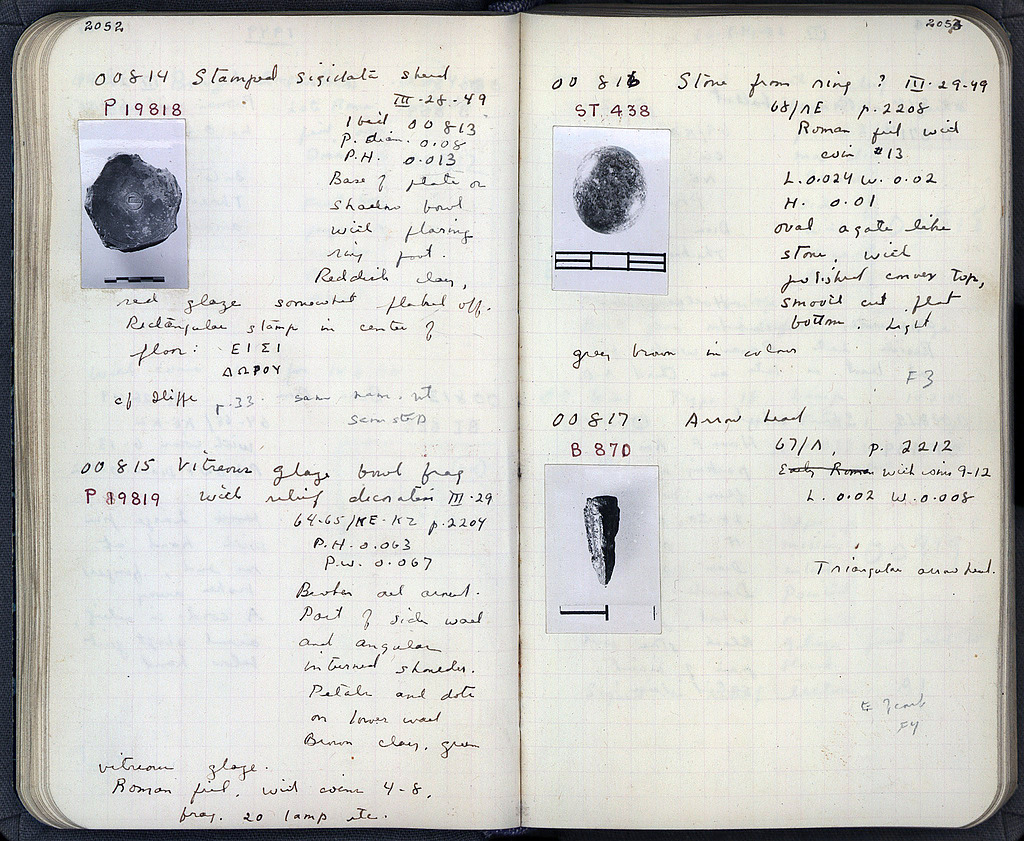 2052
OO 814 Stamped sigillata sherd
P 19818
III-28-49
1 bei OO 813
P. diam. 0.08
P.H. 0.013
Base of plate or
shallow bowl
with flaring
ring foot.
Reddish clay,
red glaze somewhat flaked off.
Rectangular stamp in center of
floor: ΕΙΣΙ
ΔΩΡΟΥ
cf Iliffe p.33. same name, not
same stamp
OO 815 Vitreous glaze bowl frag
P 19819 with relief decoration III-29
64-65/ΚΕ-ΚΖ p.2204
P.H. 0.063
P.W. 0.067
Broken all around.
Part of side wall
and angular
inturned shoulder.
Petals and dots
on lower wall
Brown clay, green
vitreous glaze.
Roman fill, with coins 4-8,
frag. 20 lamp etc.
2053
OO 816 Stone from ring? III-29-49
ST 438
68/ΛΕ p.2208
Roman fill with
coin #13
L. 0.024 W. 0.02
H. 0.01
oval agate like
stone, with
polished convex top,
smooth cut flat
bottom. Light
grey brown in colour
F3
OO 817. Arrow head
B 870
67/Λ, p. 2212
Early Roman with coins 9-12
L. 0.02 W. 0.008
Triangular arrow head.
F4